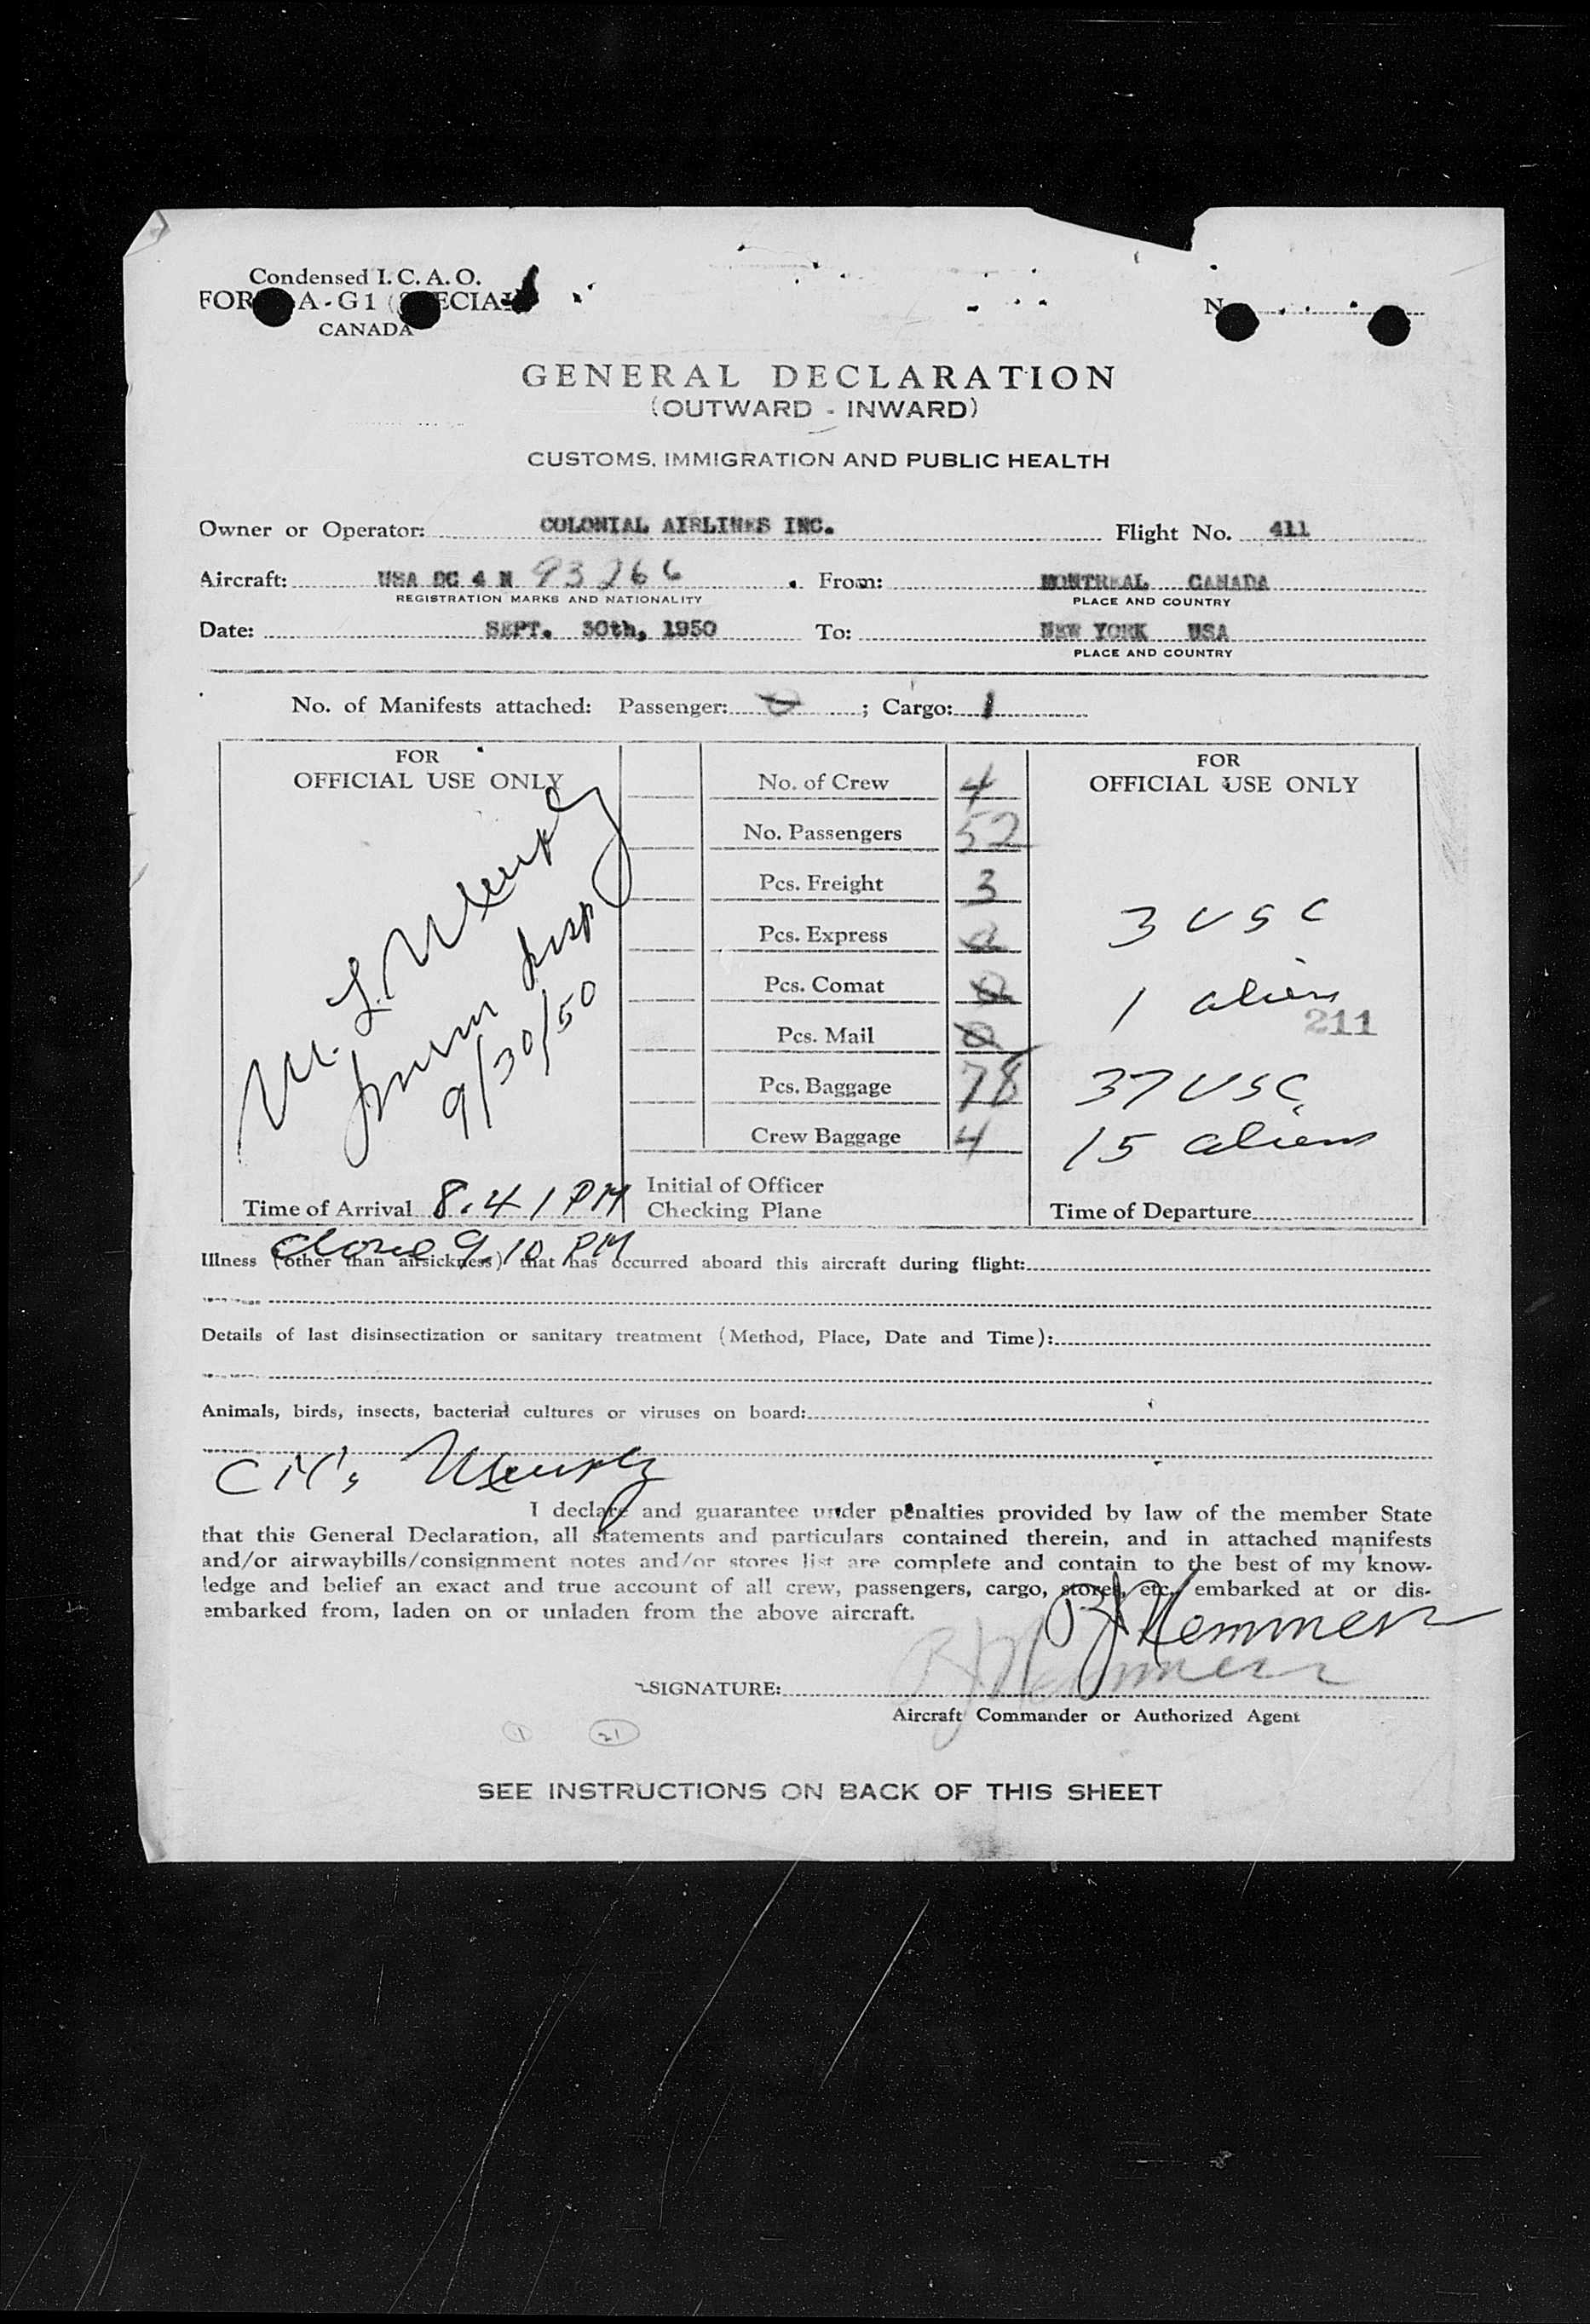 Condensed I. C. A. O.
FORM A-G1 (SPECIAL)
CANADA
GENERAL DECLARATION
(OUTWARD - INWARD)
CUSTOMS, IMMIGRATION AND PUBLIC HEALTH
Owner or Operator: COLONIAL AIRLINES INC. Flight No. 411
Aircraft: USA DC 4 N 93266 From: MONTREAL CANADA
REGISTRATION MARKS AND NATIONALITY PLACE AND COUNTRY
Date: SEPT. 30th, 1950 To: NEW YORK USA
PLACE AND COUNTRY
No. of Manifests attached: Passenger: 0; Cargo: 1
FOR
OFFICIAL USE ONLY
9/30/50
Time of Arrival 8.41 PM
No. of Crew 4
No. Passengers 52
Pcs. Freight 3
Pcs. Express
Pcs. Comat 0
Pcs. Mail 0
Pcs. Baggage 78
Crew Baggage 4
Initial of Officer
Checking Plane
FOR
OFFICIAL USE ONLY
3 USC
1 alien
211
37 USC
15 aliens
Time of Departure
9.10 PM
Illness (other than airsickness) that has occurred aboard this aircraft during flight:
Details of last disinsectization or sanitary treatment (Method, Place, Date and Time):
Animals, birds, insects, bacterial cultures or viruses on board:
I declare and guarantee under penalties provided by law of the member State
that this General Declaration, all statements and particulars contained therein, and in attached manifests
and/or airwaybills/consignment notes and/or stores list are complete and contain to the best of my know-
ledge and belief an exact and true account of all crew, passengers, cargo, stores, etc., embarked at or dis-
embarked from, laden on or unladen from the above aircraft.
SIGNATURE:
Aircraft Commander or Authorized Agent
1 21
SEE INSTRUCTIONS ON BACK OF THIS SHEET